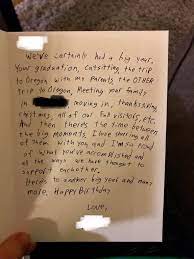 We've certainly had a big year.
Your graduation, catsitting, the trip
to Oregon with my parents the OTHER
trip to Oregon, Meeting your family
in moving in, thanksgiving
christmas, all of our fall visitors, etc.
And then there's the time between
the big moments. I love sharing all
of them with you, and I'm so proud
of what you've accomplished and
all the ways we have thought to
support eachother.
Heres to another big year and many
more. Happy Birthday
Love,